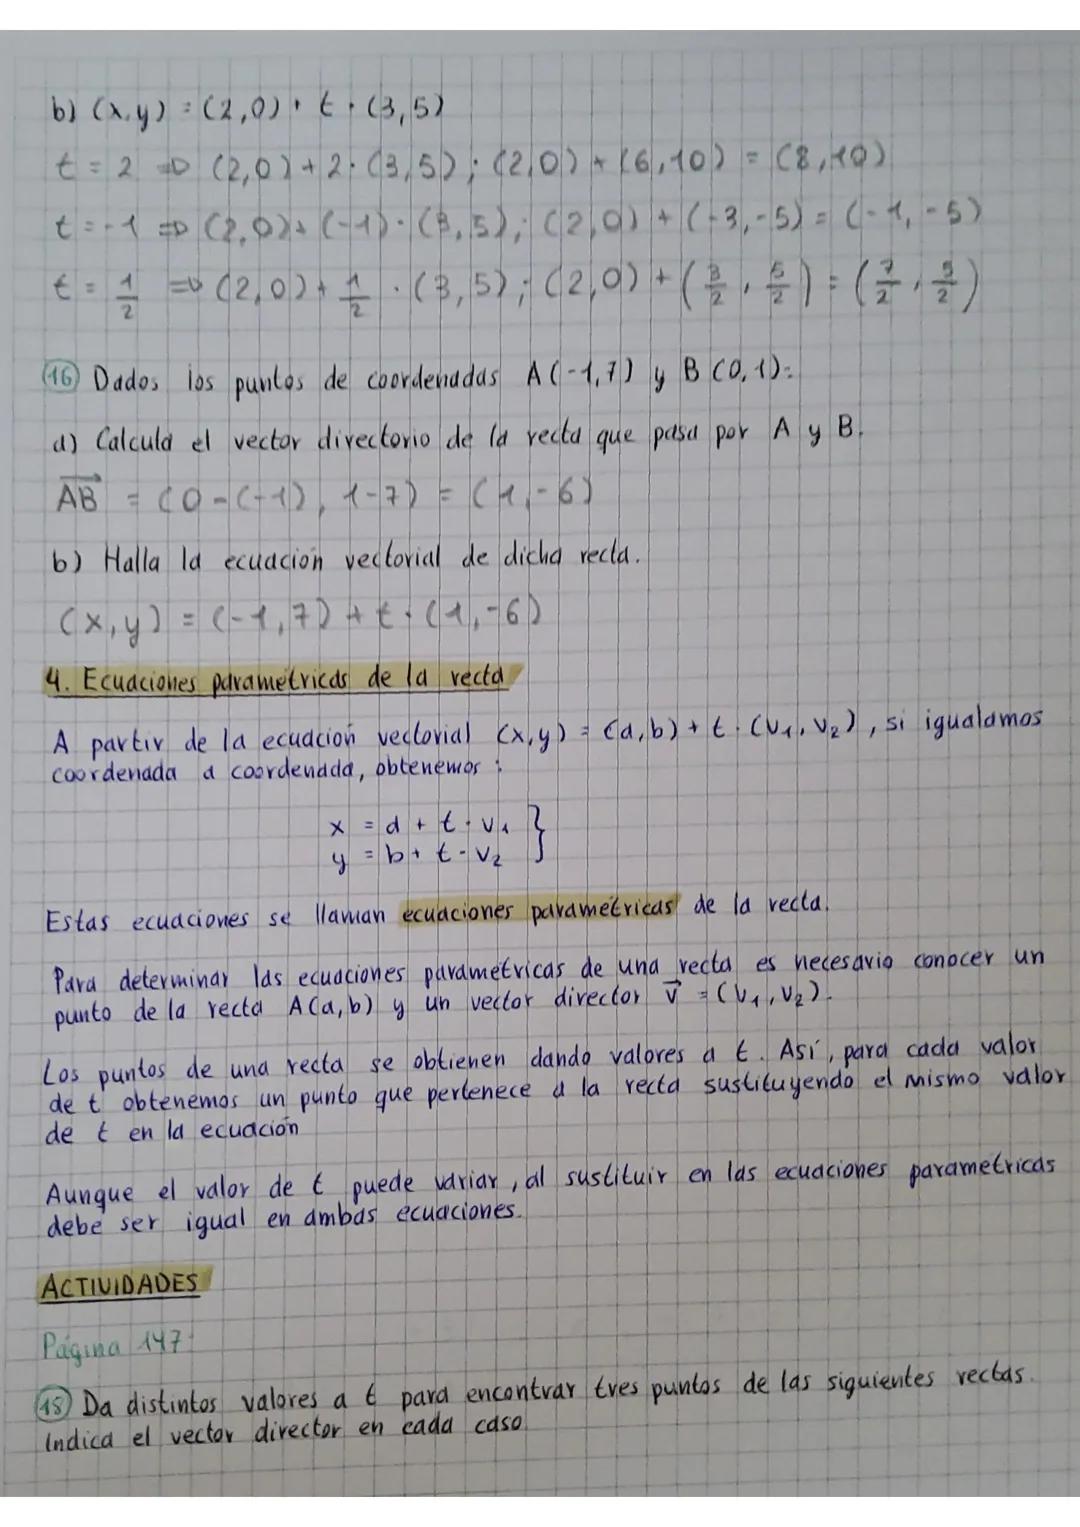 b) (x,y) = (2,0) + t · (3,5)
t = 2 ⇒ (2,0) + 2 · (3,5); (2,0) + (6,10) = (8,10)
t = -1 ⇒ (2,0) + (-1) · (3,5); (2,0) + (-3,-5) = (-1,-5)
t = 1/2 ⇒ (2,0) + 1/2 · (3,5); (2,0) + (3/2, 5/2) = (7/2, 5/2)
16 Dados los puntos de coordenadas A(-1,7) y B(0,1):
a) Calcula el vector directorio de la recta que pasa por A y B.
AB = (0-(-1), 1-7) = (1,-6)
b) Halla la ecuación vectorial de dicha recta.
(x,y) = (-1,7) + t · (1,-6)
4. Ecuaciones paramétricas de la recta
A partir de la ecuación vectorial (x,y) = (a,b) + t · (v₁, v₂), si igualamos
coordenada a coordenada, obtenemos:
x = a + t · v₁ }
y = b + t · v₂
Estas ecuaciones se llaman ecuaciones paramétricas de la recta.
Para determinar las ecuaciones paramétricas de una recta es necesario conocer un
punto de la recta A(a,b) y un vector director v⃗ = (v₁, v₂).
Los puntos de una recta se obtienen dando valores a t. Así, para cada valor
de t obtenemos un punto que pertenece a la recta sustituyendo el mismo valor
de t en la ecuación
Aunque el valor de t puede variar, al sustituir en las ecuaciones paramétricas
debe ser igual en ambas ecuaciones.
ACTIVIDADES
Página 147
18 Da distintos valores a t para encontrar tres puntos de las siguientes rectas.
Indica el vector director en cada caso.